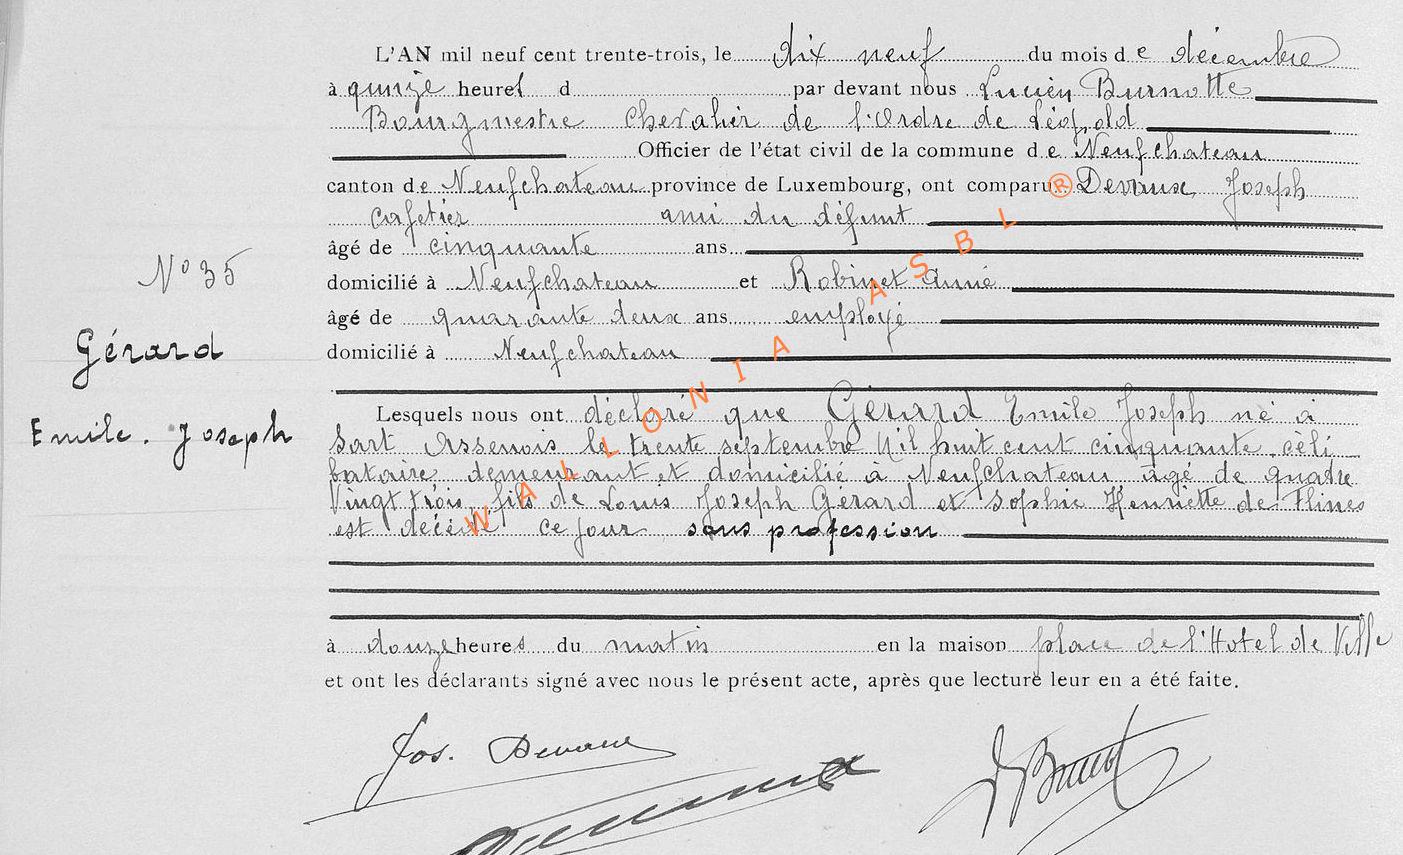 L'AN mil neuf cent trente-trois, le dix neuf du mois de décembre
à quinze heures d par devant nous Lucien Burnotte
Bourgmestre Chevalier de l'Ordre de Léopold
Officier de l'état civil de la commune de Neufchateau
canton de Neufchateau province de Luxembourg, ont comparu Devaux Joseph
cafetier ami du défunt
âgé de cinquante ans
N° 35
domicilié à Neufchateau et Robinet
âgé de quarante deux ans employé
Gérard
domicilié à Neufchateau
Lesquels nous ont déclaré que Gérard Emile Joseph né à
Emile. Joseph
Sart Assenois le trente septembre Mil huit cent cinquante, céli
bataire, demeurant et domicilié à Neufchateau âgé de quatre
Vingt trois, fils de Louis Joseph Gérard et Sophie Henriette de Flines
est décédé ce jour sans profession
à douze heures du matin en la maison place de l'Hotel de Ville
et ont les déclarants signé avec nous le présent acte, après que lecture leur en a été faite.
Jos. Devaux
WALLONIA ASBL ®